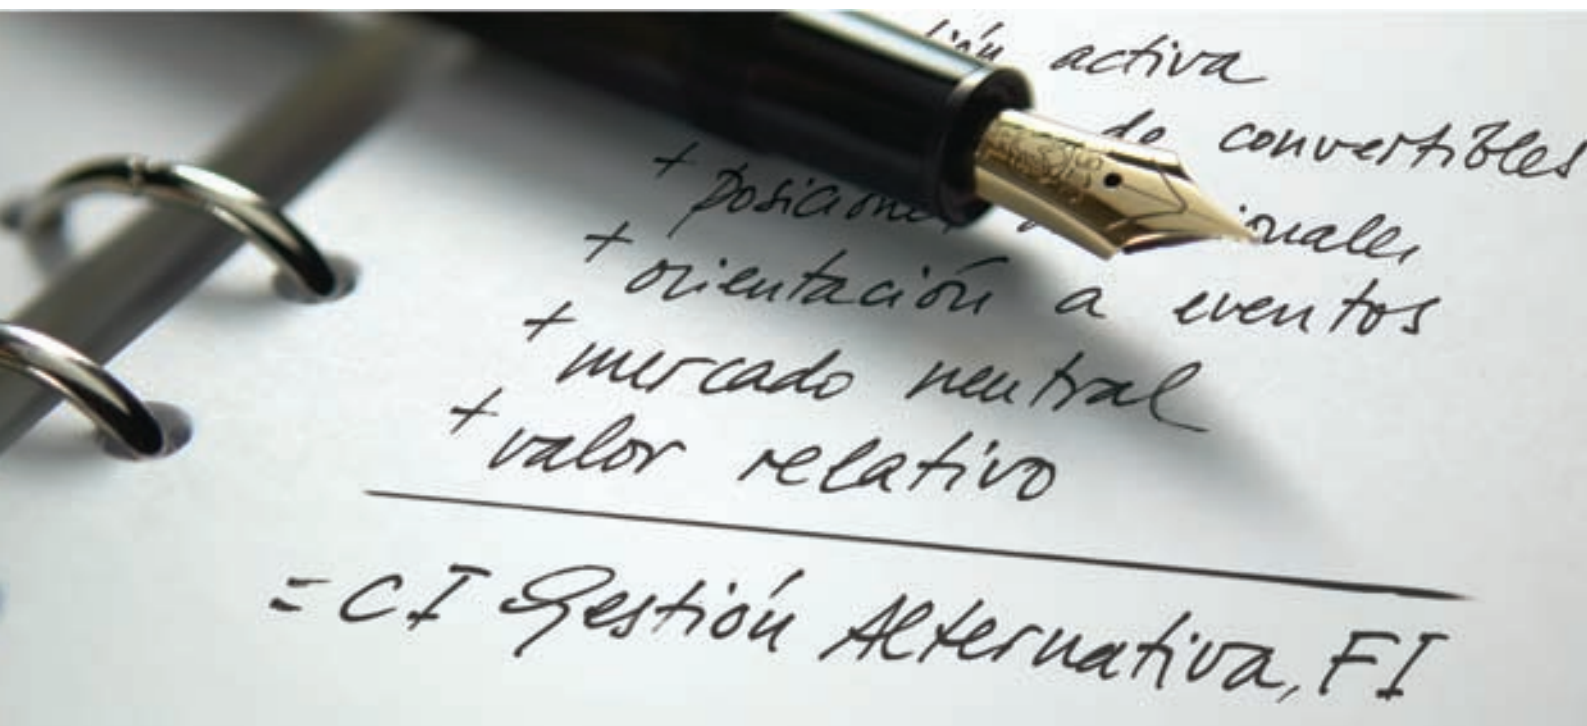 activa
de convertibles
+
+ orientación a eventos
+ mercado neutral
+ valor relativo
= CI Gestión Alternativa, FI